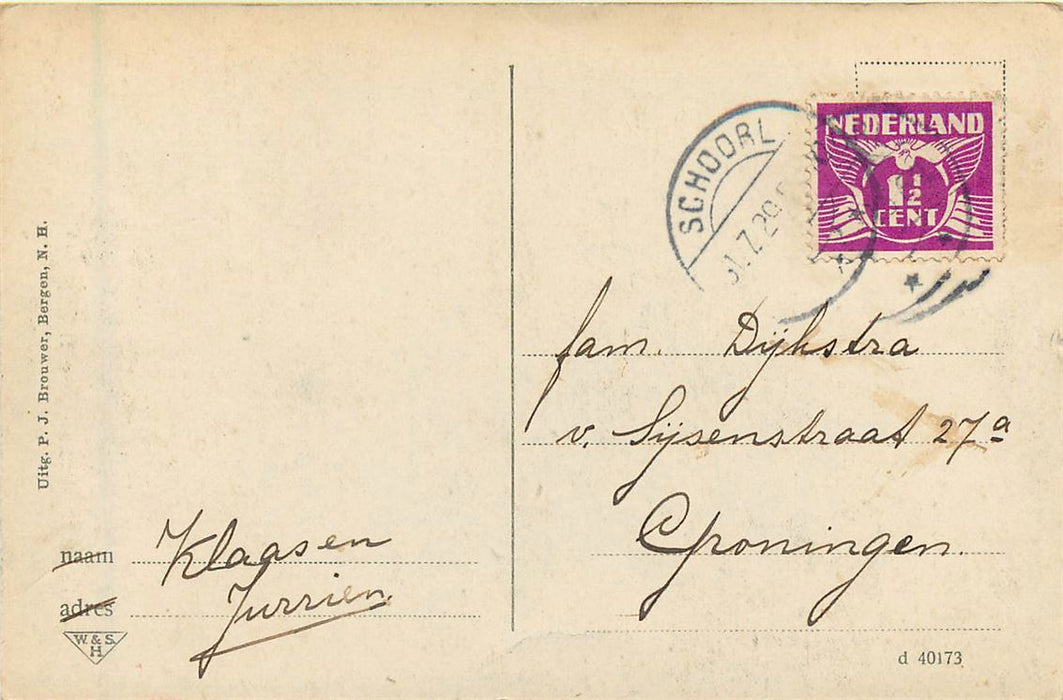 Uitg. P. J. Brouwer, Bergen, N. H.
naam Klaasen
adres Jurrien.
W. & S.
H
SCHOORL
7.29
NEDERLAND
1 1/2
CENT
fam. Dijkstra
v. Sijsenstraat 27a
Groningen.
d 40173